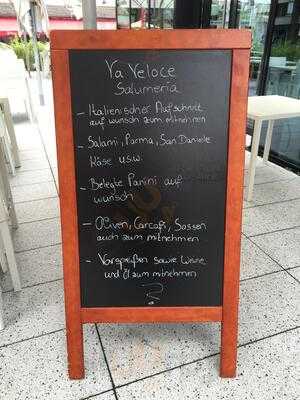 Va Veloce
Salumeria
- Italienischer Aufschnitt
auf wunsch zum mitnehmen
- Salami, Parma, San Daniele
Käse usw.
- Belegte Panini auf
wunsch
- Oliven, Carcafi, Sossen
auch zum mitnehmen
- Vorspreißen sowie Weine
und Öl zum mitnehmen